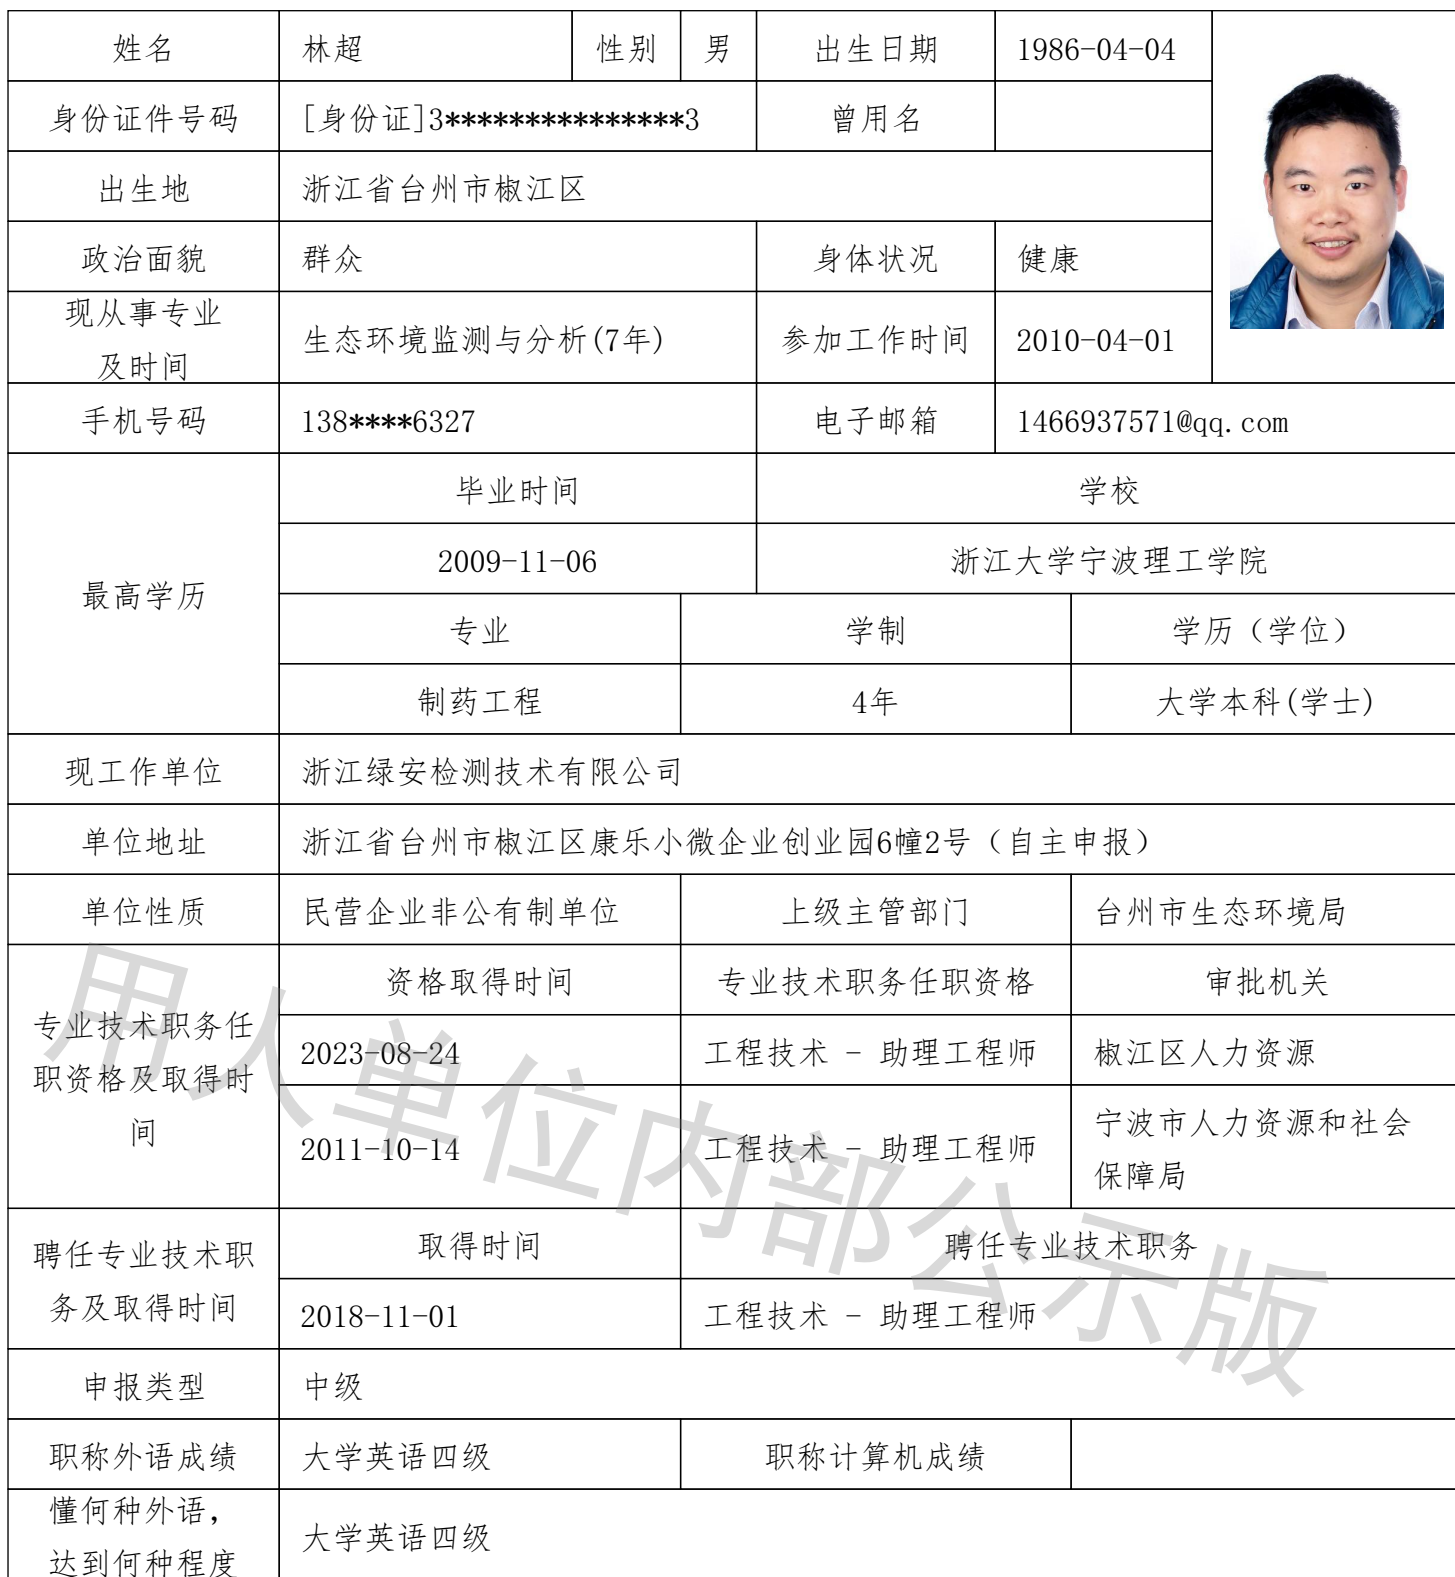 姓名 林超 性别 男 出生日期 1986-04-04
身份证件号码 [身份证]3***************3 曾用名
出生地 浙江省台州市椒江区
政治面貌 群众 身体状况 健康
现从事专业
及时间
生态环境监测与分析(7年) 参加工作时间 2010-04-01
手机号码 138****6327 电子邮箱 1466937571@qq.com
最高学历
毕业时间 学校
2009-11-06 浙江大学宁波理工学院
专业 学制 学历（学位）
制药工程 4年 大学本科(学士)
现工作单位 浙江绿安检测技术有限公司
单位地址 浙江省台州市椒江区康乐小微企业创业园6幢2号（自主申报）
单位性质 民营企业非公有制单位 上级主管部门 台州市生态环境局
专业技术职务任
职资格及取得时
间
资格取得时间 专业技术职务任职资格 审批机关
2023-08-24 工程技术 - 助理工程师 椒江区人力资源
2011-10-14 工程技术 - 助理工程师 宁波市人力资源和社会
保障局
聘任专业技术职
务及取得时间
取得时间 聘任专业技术职务
2018-11-01 工程技术 - 助理工程师
申报类型 中级
职称外语成绩 大学英语四级 职称计算机成绩
懂何种外语，
达到何种程度
大学英语四级
用人单位内部公示版